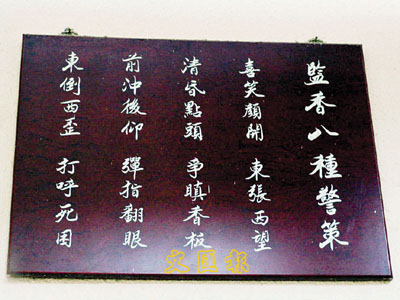 監香八種警策
喜笑顏開 東張西望
清昏點頭 爭瞋香板
前沖後仰 彈指翻眼
東倒西歪 打呼死困
文匯報